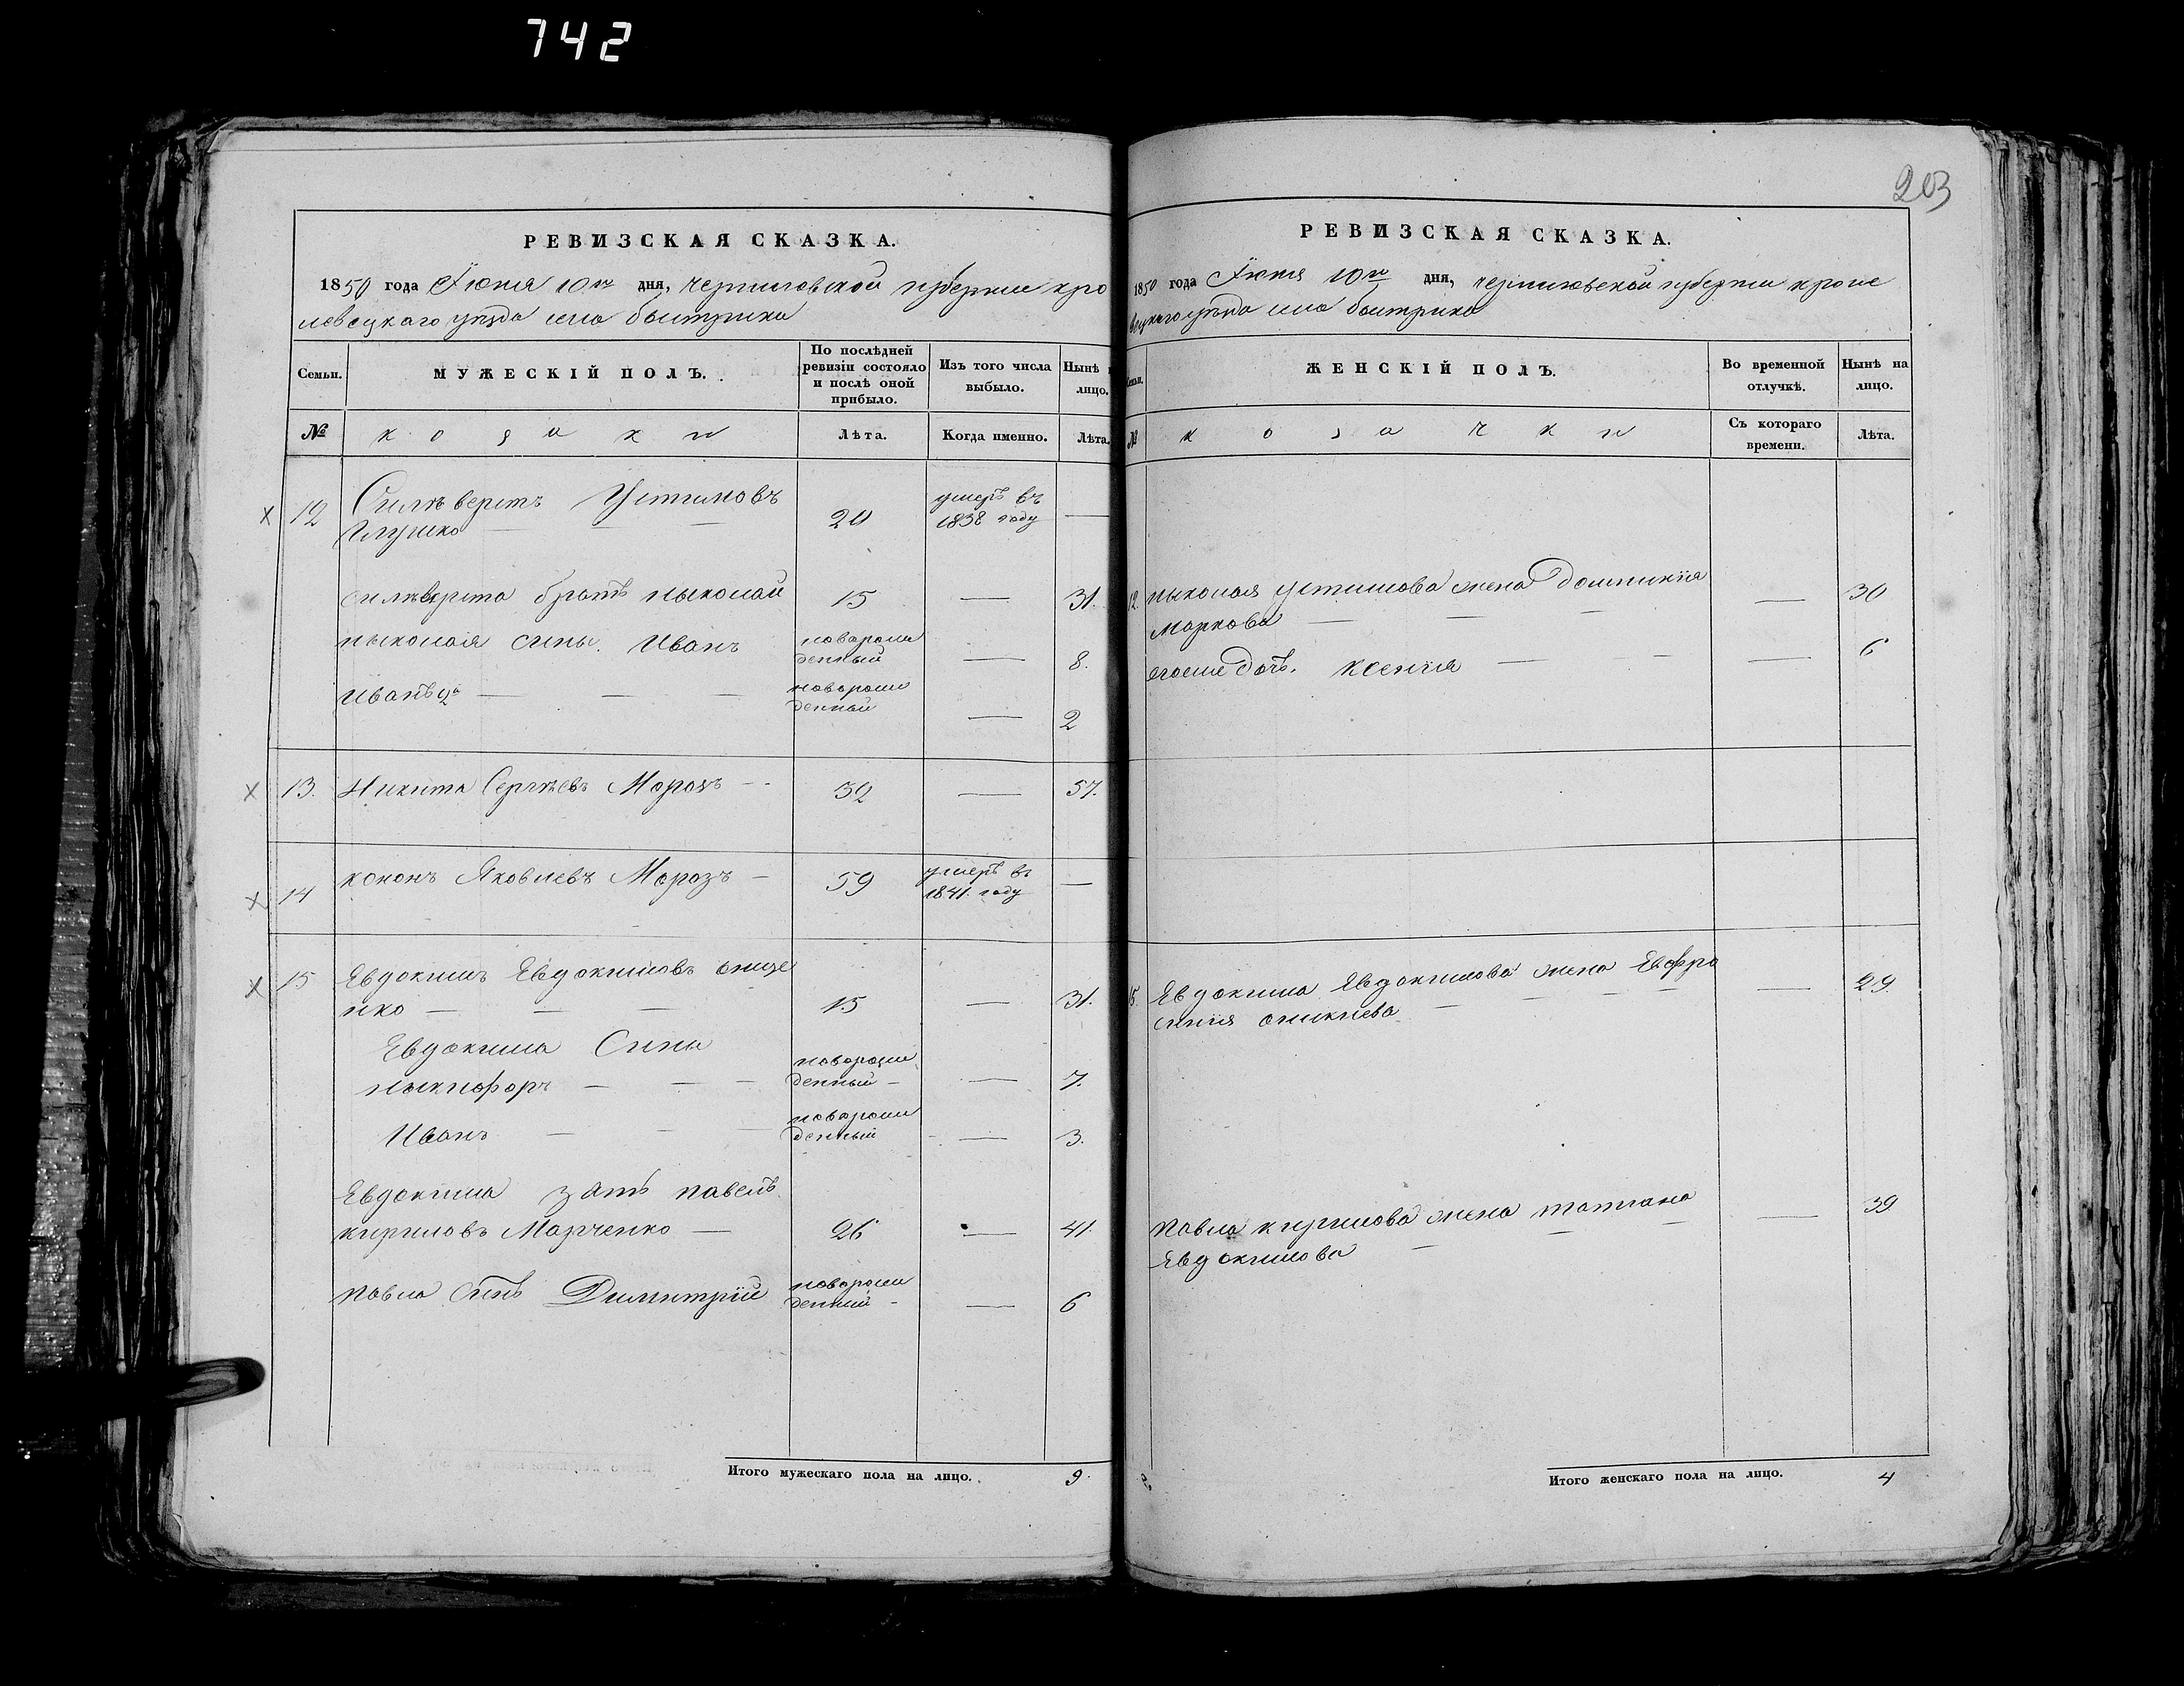 742
203
РЕВИЗСКАЯ СКАЗКА.
1850 года Іюня 10го дня, черниговской губернии кро
левецкаго уѣзда села быстрика
Семьи.
МУЖЕСКІЙ ПОЛЪ.
По послѣдней ревизіи состояло и послѣ оной прибыло.
Изъ того числа выбыло.
Нынѣ н лицо.
№
козаки
Лѣта.
Когда именно.
Лѣта.
х 12 Силивертъ Устимовъ
Глушко — — — 20 умеръ въ 1838 году —
силиверта братъ ныколай 15 — 31.
ныколая сины. Иванъ новорожденный — 8.
Иванъ 2й — — — новорожденный — 2
х 13. Никита Сергѣевъ Морозъ — 52 — 57.
х 14 кононъ Яковлевъ Морозъ — 59 умеръ въ 1841. году —
х 15 Евдокимъ Евдокимовъ онище
нко — — — 15 — 31.
Евдокима Сины
ныкифоръ — — — новорожденный — — 7.
Иванъ — — — новорожденный — 3.
Евдокима зять павелъ
кириловъ Марченко — 26 — 41.
павла синъ Димитрій новорожденный — — 6
Итого мужескаго пола на лицо. 9.
РЕВИЗСКАЯ СКАЗКА.
1850 года Іюня 10го дня, черниговской губернии кроле
вецкаго уѣзда села быстрика
Семьи.
ЖЕНСКІЙ ПОЛЪ.
Во временной отлучкѣ.
Нынѣ на лицо.
№
козачки
Съ котораго времени.
Лѣта.
12. ныколая устимова жена домникія — 30
Маркова — — —
егоже дочь. Ксенія — — — 6
15. Евдокима Евдокимова жена Евфро — 29.
синія — — —
павла кирилова жена татіана — 39
Евдокимова — — —
Итого женскаго пола на лицо. 4